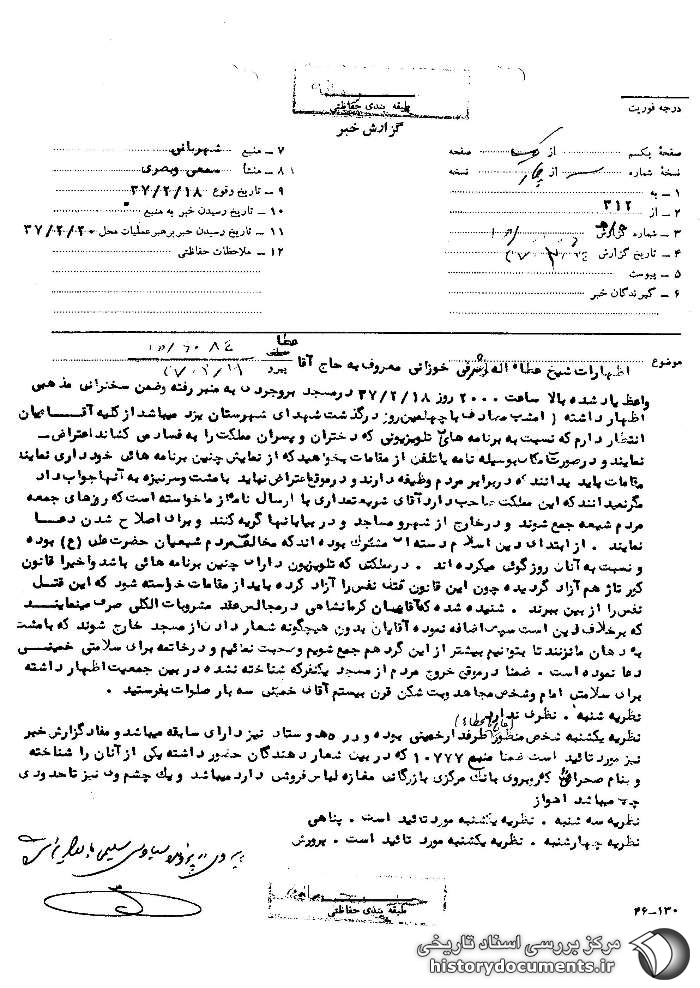 طبقه بندی حفاظتی
گزارش خبر
درجه فوریت
صفحهٔ یکم از صفحه
نسخهٔ شماره از چهار نسخه
۱ – به
۲ – از ۳۱۲
۳ – شماره گزارش
۴ – تاریخ گزارش
۵ – پیوست
۶ – گیرندگان خبر
۷ – منبع شهربانی
۸ – منشأ سمعی و بصری
۹ – تاریخ وقوع ۳۷/۲/۱۸
۱۰ – تاریخ رسیدن خبر به منبع
۱۱ – تاریخ رسیدن خبر برهبر عملیات محل ۳۷/۲/۲۰
۱۲ – ملاحظات حفاظتی
موضوع اظهارات شیخ عطاء اله اشرفی خوزانی معروف به حاج آقا عطا
پیرو
واعظ یاد شده بالا ساعت ۲۰۰۰ روز ۳۷/۲/۱۸ درمسجد بروجردی به منبر رفته وضمن سخنرانی مذهبی
اظهار داشته ( امشب مصادف با چهلمین روز درگذشت شهدای شهرستان یزد میباشد از کلیه آقایان
انتظار دارم که نسبت به برنامه های تلویزیونی که دختران و پسران مملکت را به فساد می کشاند اعتراض –
نمایند و درصورت امکان بوسیله نامه یا تلفن از مقامات بخواهید که از نمایش چنین برنامه هائی خود داری نمایند
مقامات باید بدانند که در برابر مردم وظیفه دارند و در موقع اعتراض نباید با مشت و سرنیزه به آنها جواب داد
مگر نمیدانند که این مملکت صاحب دارد آقای شریعتمداری با ارسال نامه از ما خواسته است که روزهای جمعه
مردم شیعه جمع شوند و در خارج از شهر و مساجد و در بیابانها گریه کنند و برای اصلاح شدن دعا
نمایند . از ابتدای دین اسلام دسته ای مشترک بوده اند که مخالف مردم شیعیان حضرت علی (ع) بوده
و نسبت به آنان زور گوئی میکرده اند . در مملکتی که تلویزیون دارای چنین برنامه هائی باشد و اخیرا قانون
کورتاژ هم آزاد گردیده چون این قانون قتل نفس را آزاد کرده باید از مقامات خواسته شود که این قتل
نفس را از بین ببرند . شنیده شده که آقایان کرمانشاهی در مجالس عقد مشروبات الکلی صرف مینمایند
که برخلاف دین است سپس اضافه نموده آقایان بدون هیچگونه شعار دادن از مسجد خارج شوند که با مشت
به دهان ما نزنند تا بتوانیم بیشتر از این گرد هم جمع شویم و صحبت نمائیم و در خاتمه برای سلامتی خمینی
دعا نموده است . ضمنا در موقع خروج مردم از مسجد یکنفر که شناخته نشده در بین جمعیت اظهار داشته
برای سلامتی امام و شخص مجاهد و بت شکن قرن بیستم آقای خمینی سه بار صلوات بفرستید .
نظریه شنبه . نظری ندارد
(حاج آقا عطاء)
نظریه یکشنبه شخص منظور طرفدار خمینی بوده و در ۵ هد و ستاد نیز دارای سابقه میباشد و مفاد گزارش خبر
نیز مورد تائید است ضمنا منبع ۱۰۷۷۷ که در بین شعار دهندگان حضور داشته یکی از آنان را شناخته
و بنام صحرائی که روبروی بانک مرکزی بازرگانی مغازه لباس فروشی دارد میباشد و یک چشم وی نیز تا حدودی
چپ میباشد اهواز
نظریه سه شنبه . نظریه یکشنبه مورد تائید است . پناهی
نظریه چهارشنبه . نظریه یکشنبه مورد تائید است . پرورش
طبقه بندی حفاظتی
۴۶–۱۳۰
مرکز بررسی اسناد تاریخی
historydocuments.ir